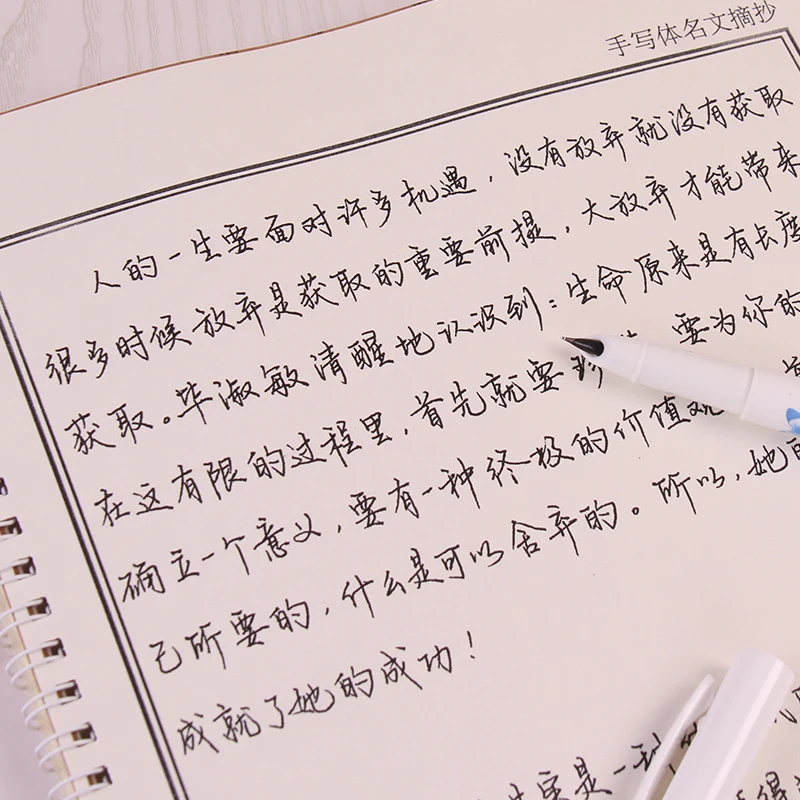 手写体名文摘抄
人的一生要面对许多机遇，没有放弃就没有获取
很多时候放弃是获取的重要前提，大放弃才能带来
获取。毕淑敏清醒地认识到：生命原来是有长度
在这有限的过程里，首先就要 要为你的
确立一个意义，要有一种终极的价值观
己所要的，什么是可以舍弃的。所以，她的
成就了她的成功！
实是一
得